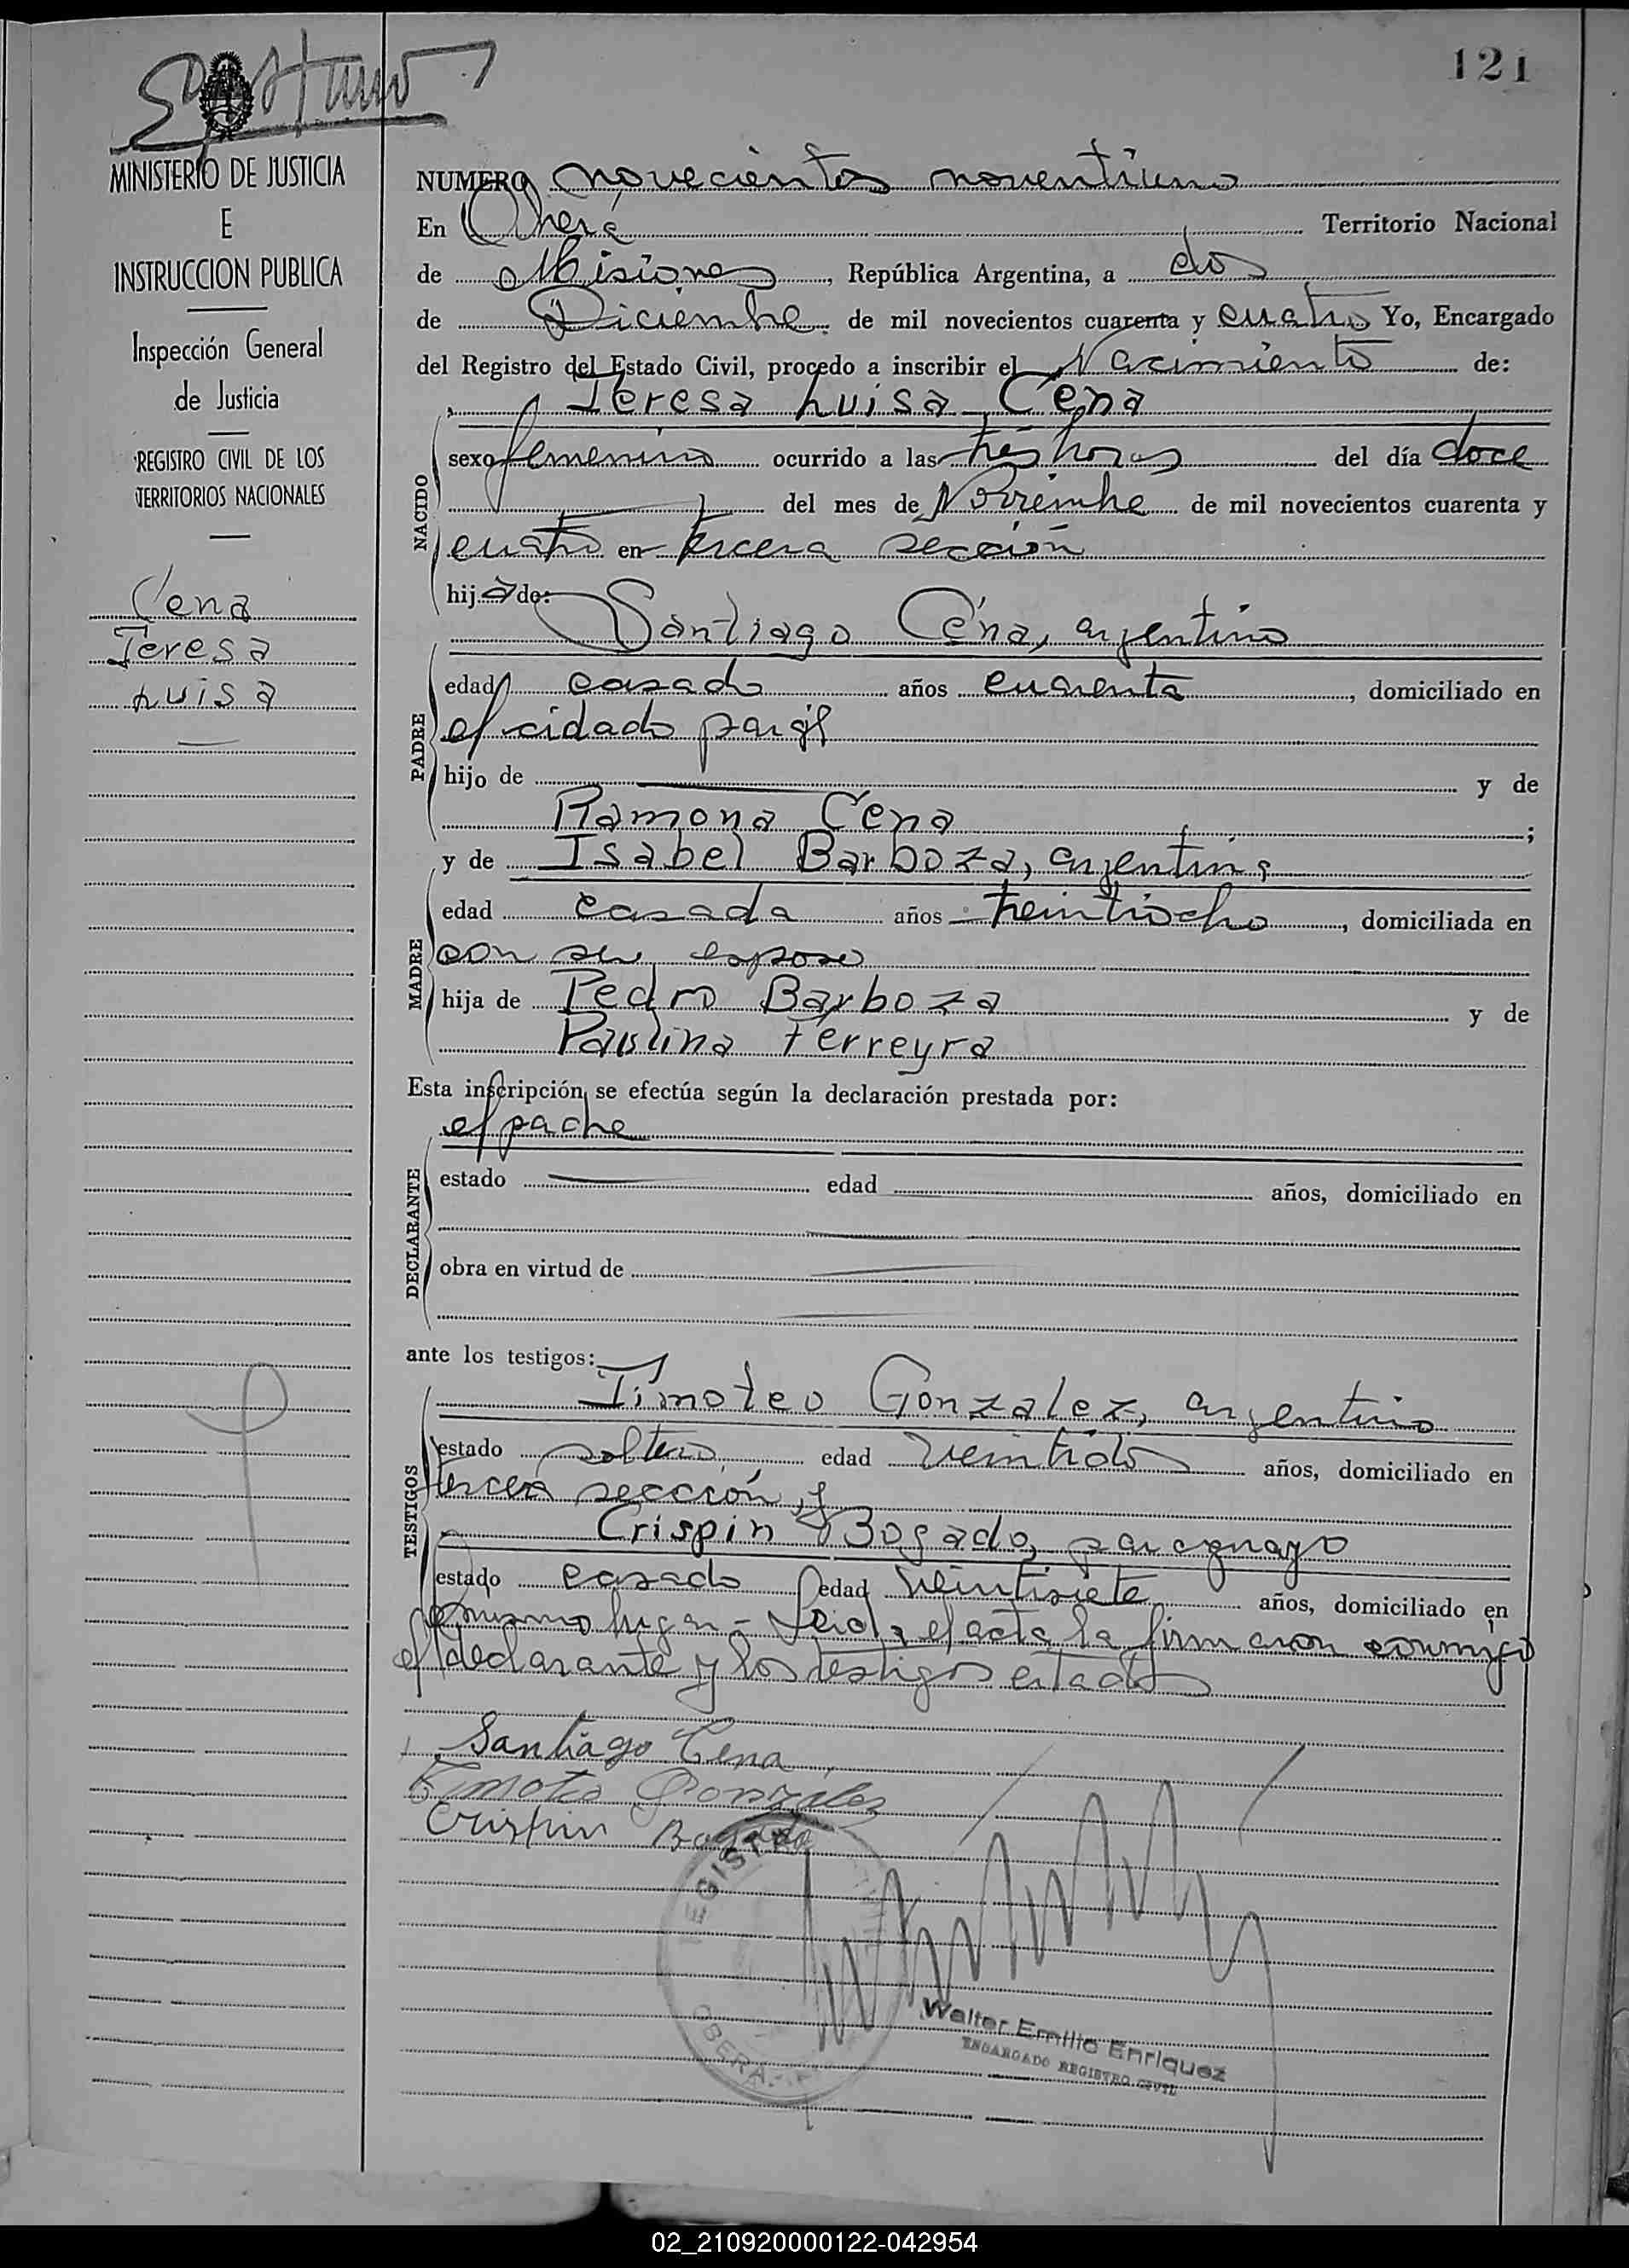 121
MINISTERIO DE JUSTICIA
E
INSTRUCCION PUBLICA
Inspección General
de Justicia
REGISTRO CIVIL DE LOS
TERRITORIOS NACIONALES
Cena
Teresa
Luisa
NUMERO novecientos noventiuno
En Oberá Territorio Nacional
de Misiones, República Argentina, a dos
de Diciembre de mil novecientos cuarenta y cuatro Yo, Encargado
del Registro del Estado Civil, procedo a inscribir el Nacimiento de:
Teresa Luisa Cena
NACIDO
sexo femenino ocurrido a las tres horas del día doce
del mes de Noviembre de mil novecientos cuarenta y
cuatro en tercera sección
hija de:
Santiago Cena, argentino
PADRE
edad casado años cuarenta, domiciliado en
el cidado
hijo de y de
Ramona Cena ;
y de Isabel Barboza, argentina
MADRE
edad casada años treintiocho, domiciliada en
con su esposo
hija de Pedro Barboza y de
Paulina Ferreyra
Esta inscripción se efectúa según la declaración prestada por:
el padre
DECLARANTE
estado edad años, domiciliado en
obra en virtud de
ante los testigos:
Timoteo Gonzalez, argentino
TESTIGOS
estado soltero edad veintidos años, domiciliado en
tercera sección y
Crispin Bogado, paraguayo
estado casado edad veintisiete años, domiciliado en
mismo lugar - Leida el acta la firmaron conmigo
el declarante y los testigos citados
Santiago Cena
Timoteo Gonzalez
Crispin Bogado
REGISTRO CIVIL
OBERA
Walter Emilio Enriquez
ENCARGADO REGISTRO CIVIL
02_210920000122-042954